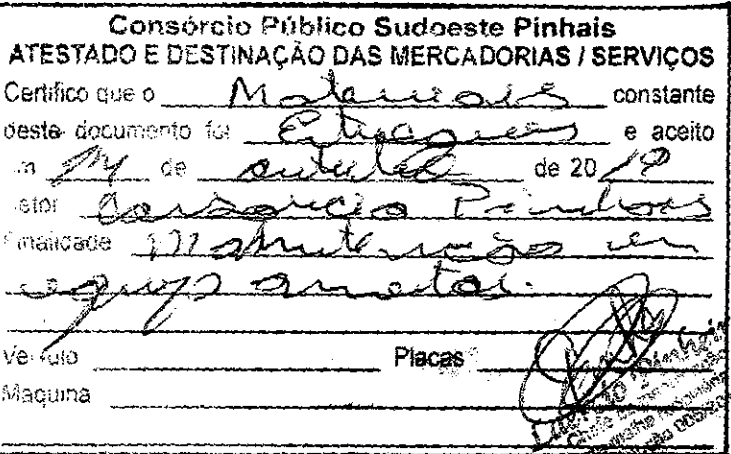 Consórcio Público Sudoeste Pinhais
ATESTADO E DESTINAÇÃO DAS MERCADORIAS / SERVIÇOS
Certifico que o Materiais constante
deste documento foi Entregues e aceito
em 14 de outubro de 2019
Setor Consorcio Pinhais
Finalidade Manutenção em
equipamentos.
Veículo Placas
Maquina